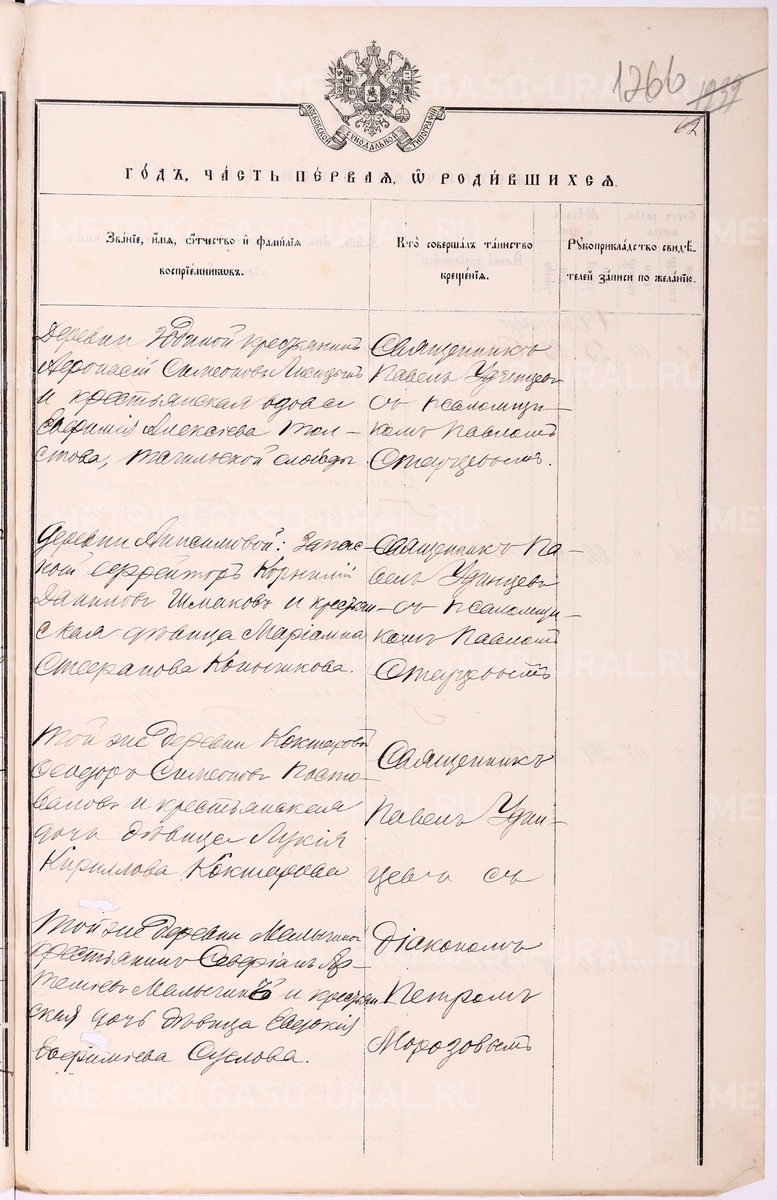 1266
1239
62
МОСКОВСКОЙ СѴНОДАЛЬНОЙ ТИПОГРАФІИ
ГО́ДЪ, ЧА́СТЬ ПЕ́РВАЯ, Ѽ РОДИ́ВШИХСѦ.
Зва́ніе, и҆́мя, ѻ҆́тчество и҆ фами́лїя
воспрїе́мниковъ.
Кто̀ соверша́лъ та́инство
креще́нїя.
Рꙋкоприкла́дство свидѣ́-
телей за́писи по жела́нїю.
Деревни Юдиной крестьянинъ
Аѳонасій Симеоновъ
и крестьянская вдова
Евфимія Алексѣева Тол-
стова, Тагильской слободы
Священникъ
Павелъ Удинцевъ
съ псаломщи-
комъ Павломъ
Деревни Анисимовой: Запас-
ный ефрейторъ Корнилій
Даниловъ Шмаковъ и крестьян-
ская дѣвица Маріамна
Стефанова Копышкова.
Священникъ Па-
велъ Удинцевъ
съ псаломщи-
комъ Павломъ
Той же деревни Кокшаровой
Ѳеодоръ Симеоновъ Косто-
валовъ и крестьянская
дочь дѣвица Лукія
Кириллова Кокшарова
Священникъ
Павелъ Удин-
цевъ съ
Той же деревни Малыгиной
крестьянинъ Северіанъ Ар-
теміевъ Малыгинъ и крестьян-
ская дочь дѣвица Евдокія
Евфиміева Суслова.
Діакономъ
Петромъ
Морозовымъ
METRIKI.GASO-URAL.RU